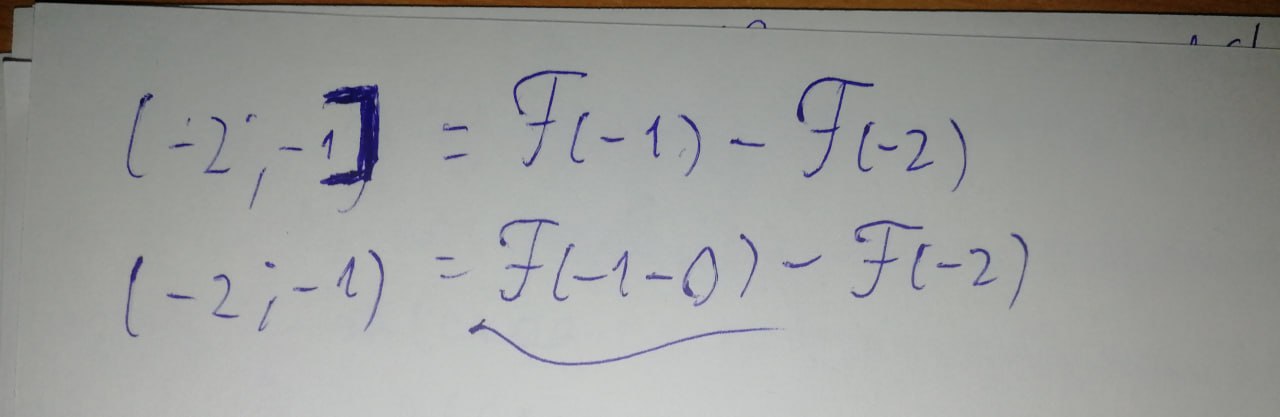 (-2; -1] = F(-1) - F(-2)
(-2; -1) = F(-1-0) - F(-2)